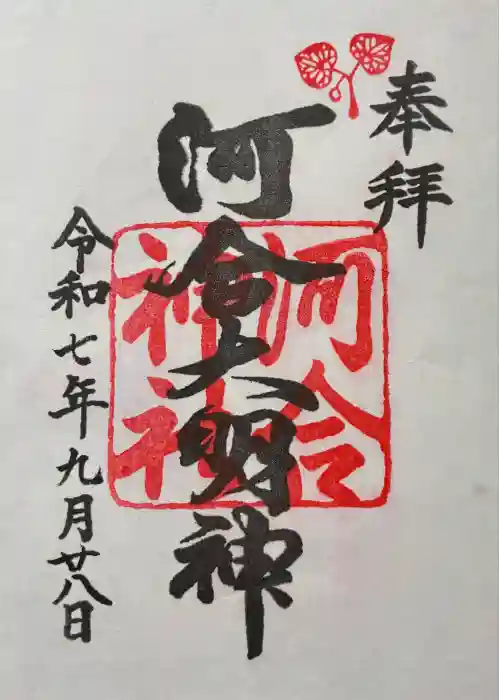 奉拝
河合大明神
令和七年九月廿八日
河合
神社